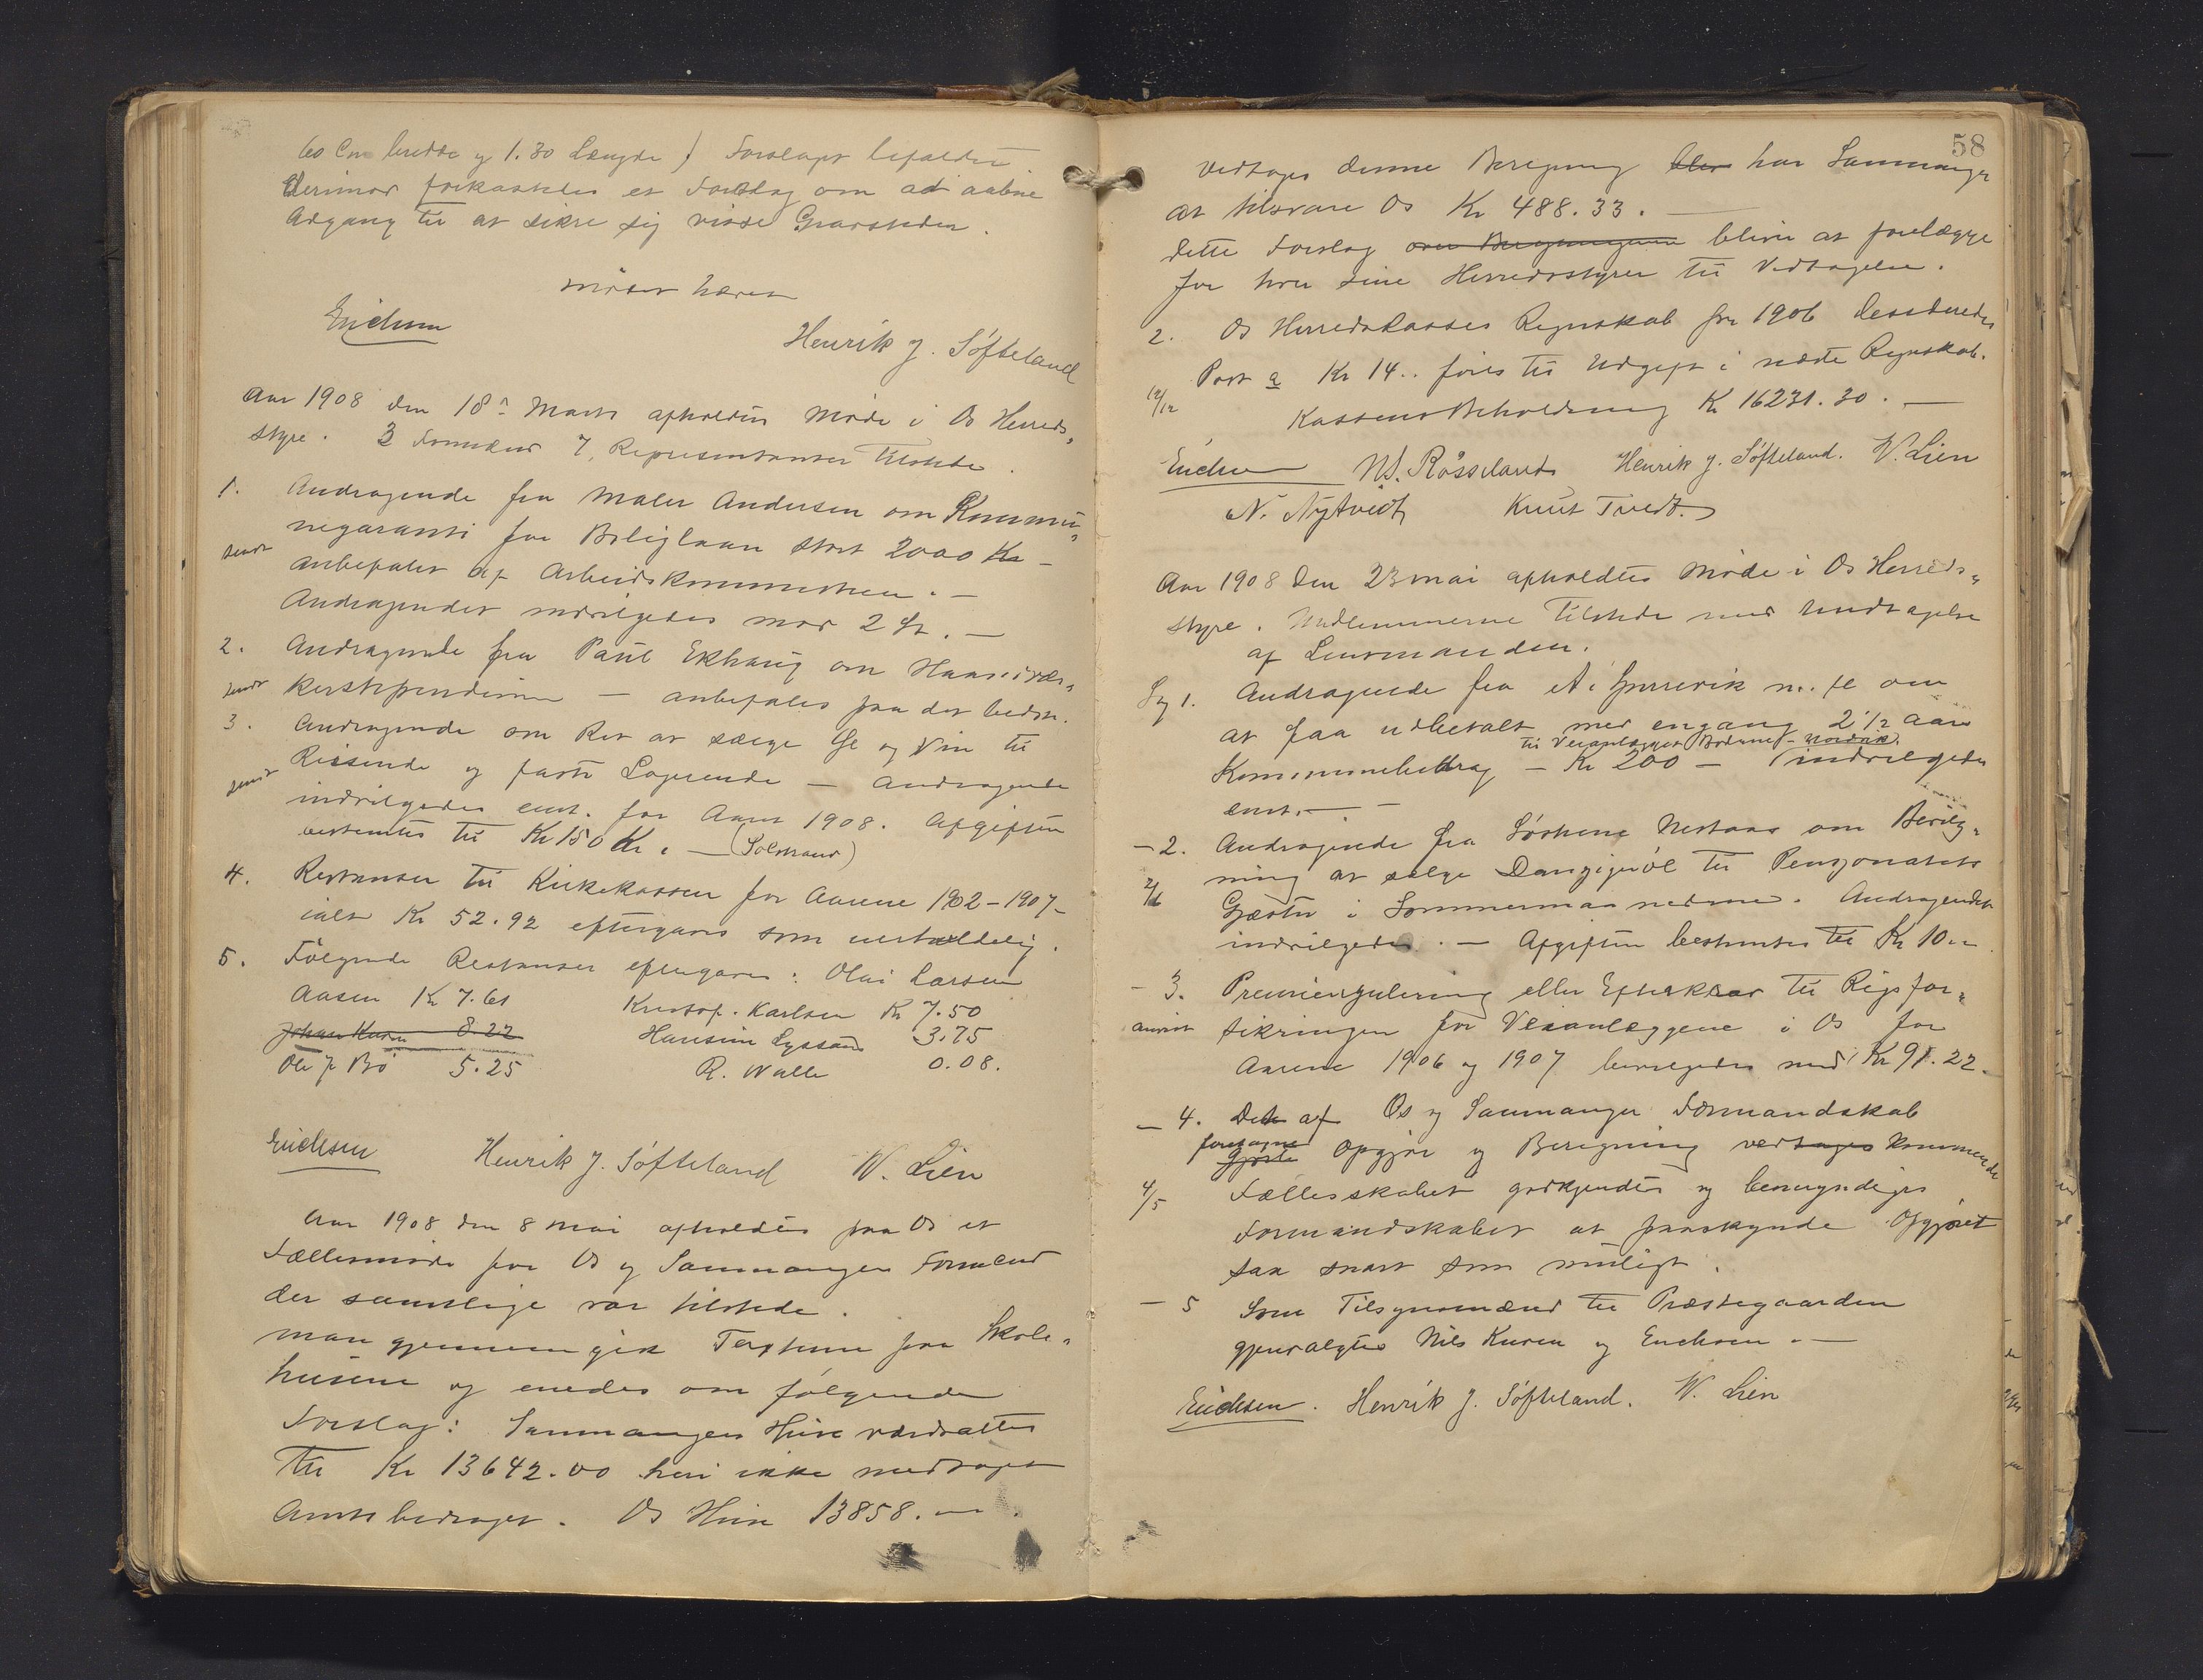 60 Cm bredde og 1.30 Længde) Forslaget bifaldtes
Derimod forkastedes et Forslag om at aabne
Adgang til at sikre sig visse Gravsteder.
Mødet hævet
Erichsen
Henrik J. Søfteland
Aar 1908 den 18de Marts afholdtes Møde i Os Herreds-
styre. 3 Formænd 7 Representanter tilstede.
1. Andragende fra Maler Andersen om Kommu-
negaranti for Boliglaan stort 2000 Kr -
sendt
anbefalet af Arbeidskommissionen. -
Andragendet indvilgedes mod 2 St. -
2. Andragende fra Paul Ekhaug om Haandvær-
sendt
kerstipendium - anbefales paa det bedste.
3. Andragende om Ret at sælge Øl og Vin til
Reisende og faste Logerende - Andragende
sendt
indvilgedes enst. for Aaret 1908. Afgiften
bestemtes til Kr 150 Kr. - (Solstrand)
4. Restanser til Kirkekassen for Aarene 1902-1907-
ialt Kr 52.92 eftergaves som uerholdelig.
5. Følgende Restanser eftergaves: Olai Larsen
Aasen Kr 7.61 Kristof. Karlsen Kr 7.50
Johan Kuven 8.22 Hansine Lyssand 3.75
Ole J. Bø 5.25 R. Walle 0.08.
Erichsen Henrik J. Søfteland W. Lien
Aar 1908 den 8 Mai afholdtes paa Os et
Fællesmøde for Os og Samnanger Formænd
der samtlige var tilstede.
Man gjennemgik Taxterne paa Skole-
husene og enedes om følgende
Forslag: Samnangers Huse værdsattes
til Kr 13642.00 heri ikke medtaget
Amtsbidraget. Os Huse 13858.00.
58
Vedtages denne Beregning blev har Samnanger
at tilsvare Os Kr 488.33. -
Dette Forslag over Beregningerne bliver at forelægge
for hver sine Herredsstyrer til Vedtagelse.
2. Os Herredskasses Regnskab for 1906 decideredes
Post a Kr 14.. føres til Udgift i næste Regnskab.
12/12
Kassens Beholdning Kr 16231.30. -
Erichsen N.S. Røsseland Henrik J. Søfteland. W. Lien
N. Nytvedt Knut Tvedt.
Aar 1908 den 23 Mai afholdtes Møde i Os Herreds-
styre. Medlemmerne Tilstede med Undtagelse
af Lensmanden.
Sag 1. Andragende fra m. fl. om
at faa udbetalt med engang 2 1/2 Aars
til Veianlægget
Kommunebidrag - Kr 200 - indvilgedes
enst. -
- 2. Andragende fra Søstrene Nestaas om Bevilg-
ning at selge Danzigerøl til Pensjonatets
Gjæster i Sommermaanederne. Andragendet
indvilgedes. - Afgiften bestemtes til Kr 10..
- 3. Premieregulering eller Efterkrav til Rigsfor-
anvist
sikringen for Veianlæggene i Os for
Aarene 1906 og 1907 bevilgedes med Kr 91.22.
- 4. Det af Os og Samnanger Formandskab
foretagne
gjorte Opgjør og Beregning vedtages kommende
4/5
Fællesskabet godkjendtes og bemyndiges
Formandskabet at paaskynde Opgjøret
saa snart som muligt.
- 5 Som Tilsynsmænd til Præstegaarden
gjenvalgtes Nils Kuven og Erichsen. -
Erichsen. Henrik J. Søfteland. W. Lien